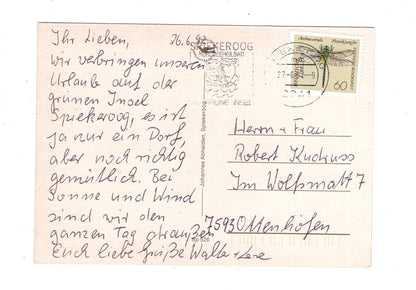 Ihr Lieben,
26.6.92
wir verbringen unseren
Urlaub auf der
grünen Insel
Spiekeroog, es ist
ja nur ein Dorf,
aber noch richtig
gemütlich. Bei
Sonne und Wind
sind wir den
ganzen Tag draußen
Euch liebe Grüße Walter +
SPIEKEROOG
NORDSEEHEILBAD
GRÜNE INSEL
27.-6.92-9
2941
60
Johannes Abheiden, Spiekeroog
Herrn + Frau
Robert
Im Wolfsmatt 7
7593 Ottenhöfen